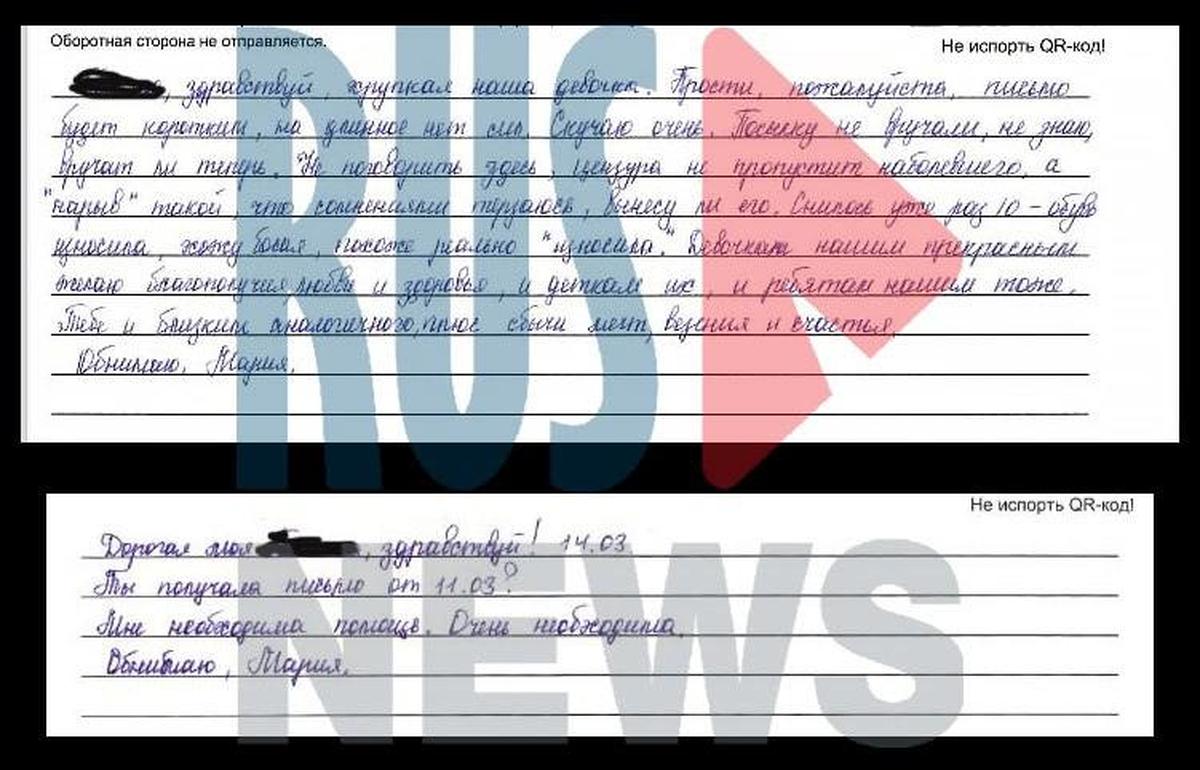 Оборотная сторона не отправляется.
Не испорть QR-код!
, здравствуй, хрупкая наша девочка. Прости, пожалуйста, письмо
будет коротким, на длинное нет сил. Скучаю очень. Посылку не вручали, не знаю,
вручат ли теперь. Не поговорить здесь, цензура не пропустит наболевшего, а
"нарыв" такой, что сомнениями терзаюсь, вынесу ли его. Снилось уже раз 10 - обувь
износила, хожу босая, похоже реально "износила." Девочкам нашим прекрасным
желаю благополучия, любви и здоровья, и деткам их, и ребятам нашим тоже.
Тебе и близким аналогичного, плюс сбычи мечт, везения и счастья.
Обнимаю, Мария.
RUS
Не испорть QR-код!
Дорогая моя , здравствуй! 14.03
Ты получала письмо от 11.03?
Мне необходима помощь. Очень необходима.
Обнимаю, Мария.
NEWS